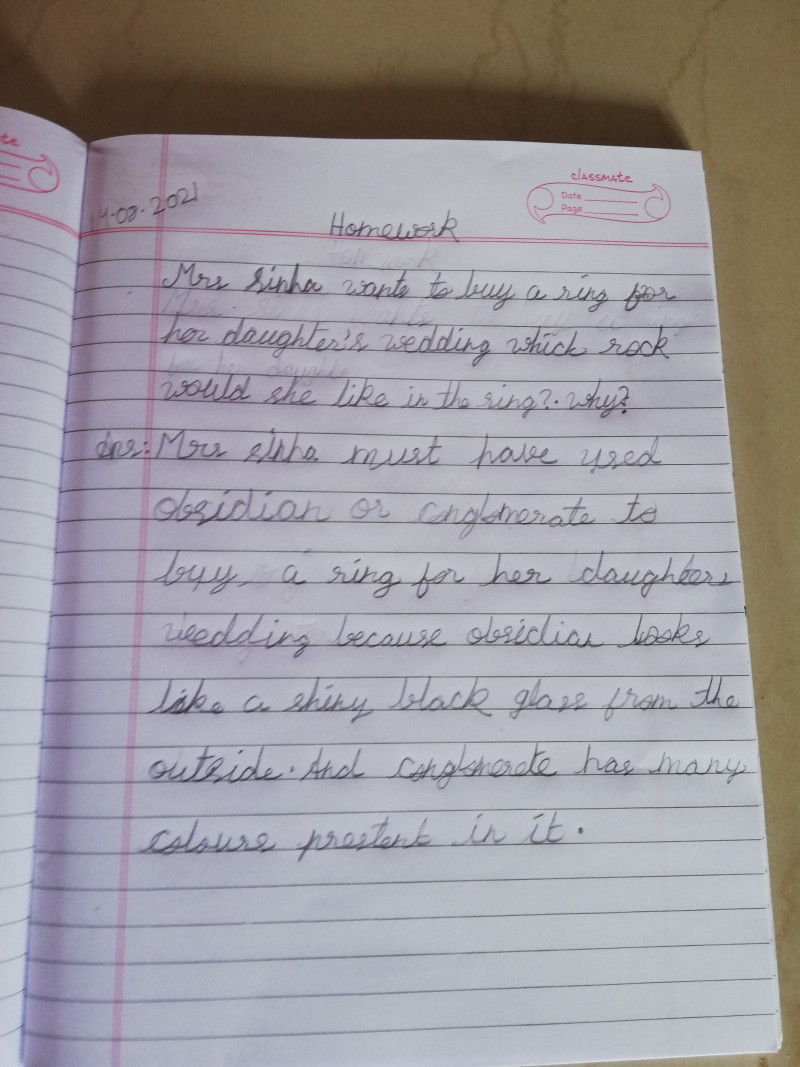 te
classmate
Date
Page
14.08.2021
Homework
Mrs Sinha wants to buy a ring for
her daughter's wedding which rock
would she like in the ring?. why?
Ans: Mrs sinha must have used
obsidian or conglomerate to
buy a ring for her daughters
wedding because obsidian looks
like a shiny black glass from the
outside. And conglomerate has many
colours prestent in it.